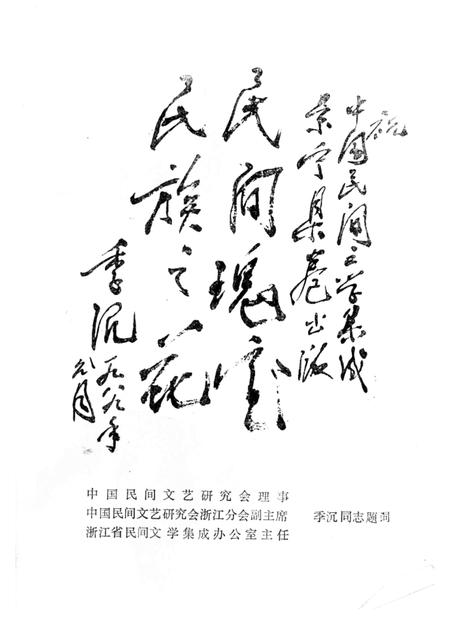 祝
中国民间文学集成
景宁县卷出版
民间瑰宝
民族之花
季沉一九八九年
元月
中国民间文艺研究会理事
中国民间文艺研究会浙江分会副主席
浙江省民间文学集成办公室主任
季沉同志题词